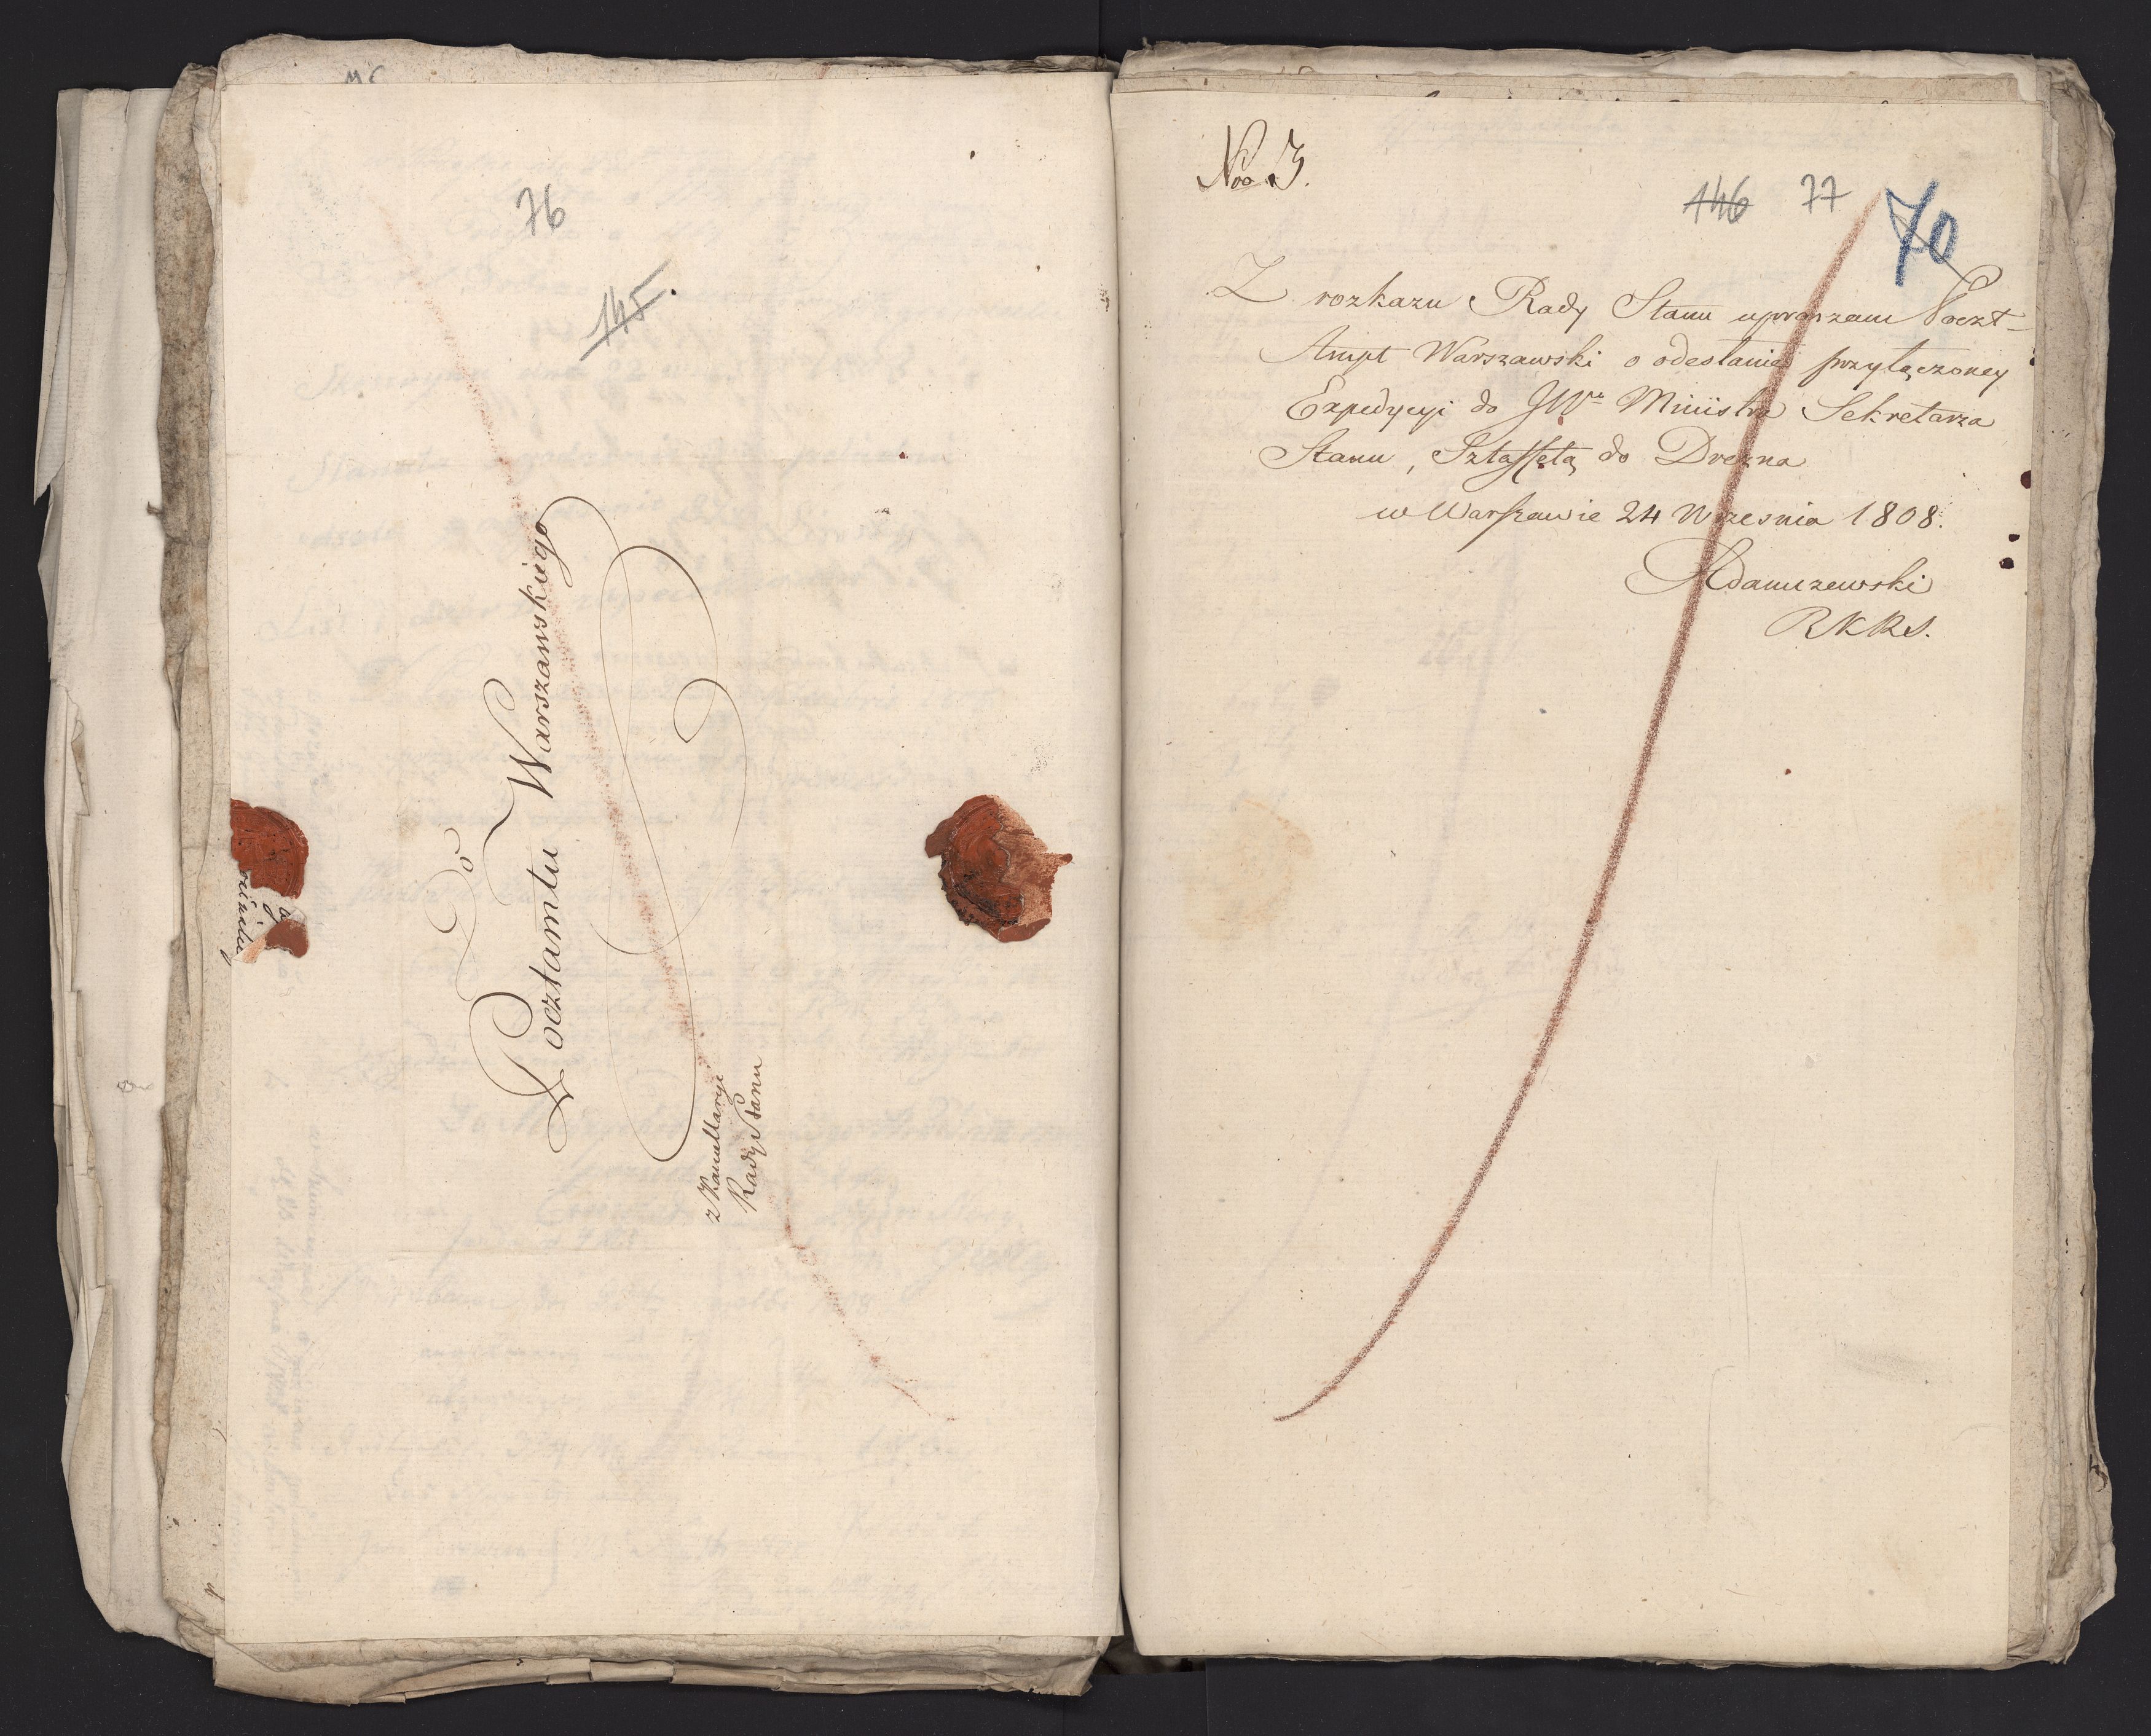 76
145.
Do
Pocztamtu Warszawskiego
z Kancellaryi
Rady Stanu
Nro 3.
146 77 70
Z rozkazu Rady Stanu upraszam Poczt-
Ampt Warszawski o odesłanie przyłączoney
Expedycyi do JWo Ministra Sekretarza
Stanu, Sztaffetą do Drezna
w Warszawie 24 Wrzesnia 1808.
Adamczewski
RKRS.